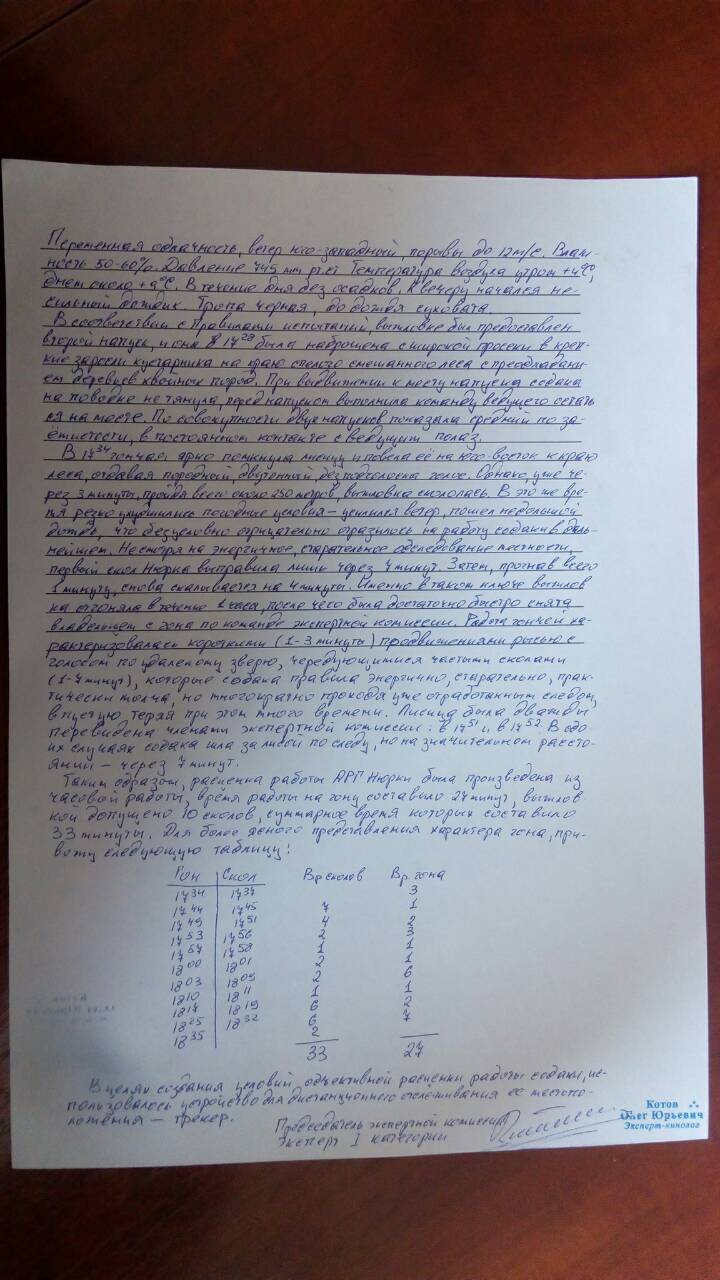 Переменная облачность, ветер юго-западный, порывы до 12 м/с. Влаж-
ность 50-60%. Давление 745 мм рт.ст. Температура воздуха утром +4°С,
днем около +9°С. В течение дня без осадков. К вечеру начался не-
сильный дождик. Тропа черная, до дождя суховата.
В соответствии с Правилами испытаний, выжловке был предоставлен
второй напуск, и она в 17 28 была наброшена с широкой просеки в креп-
кие заросли кустарника на краю спелого смешанного леса с преобладани-
ем деревьев хвойных пород. При выдвижении к месту напуска собака
на поводке не тянула, перед напуском выполнила команду ведущего остать-
ся на месте. По совокупности двух напусков показала средний по за-
ётистости, в постоянном контакте с ведущим полаз.
В 17 34 гончая ярко помкнула лисицу и повела её на юго-восток к краю
леса, отдавая породный, двутонный, без подголоска голос. Однако, уже че-
рез 3 минуты, пройдя всего около 250 метров, выжловка скололась. В это же вре-
мя резко ухудшились погодные условия – усилился ветер, пошел небольшой
дождь, что безусловно отрицательно отразилось на работу собаки в даль-
нейшем. Несмотря на энергичное, старательное обследование местности,
первый скол Нюрка выправила лишь через 7 минут. Затем, прогнав всего
1 минуту, снова скалывается на 4 минуты. Именно в таком ключе выжлов
ка отгоняла в течение 1 часа, после чего была достаточно быстро снята
владельцем с гона по команде экспертной комиссии. Работа гончей ха-
рактеризовалась короткими (1-3 минуты) продвижениями рысью с
голосом по удалелому зверю, чередующимися частыми сколами
(1-7 минут), которые собака правила энергично, старательно, прак-
тически молча, но многократно проходя уже отработанным следом,
впустую, теряя при этом много времени. Лисица была дважды
перевидена членами экспертной комиссии: в 17 51 и в 17 52. В обо-
их случаях собака шла за лисой по следу, но на значительном рассто-
янии – через 7 минут.
Таким образом, расценка работы АРГ Нюрки была произведена из
часовой работы, время работы на гону составило 27 минут, выжлов
кой допущено 10 сколов, суммарное время которых составило
33 минуты. Для более ясного представления характера гона, при-
вожу следующую таблицу:
Гон Скол Вр. сколов Вр. гона
17 34 17 37 3
17 44 17 45 7 1
17 49 17 51 4 2
17 53 17 56 2 3
17 57 17 58 1 1
18 00 18 01 2 1
18 03 18 09 2 6
18 10 18 11 1 1
18 17 18 19 6 2
18 25 18 32 6 7
18 35 2
33 27
В целях создания условий объективной расценки работы собаки, ис-
пользовалось устройство для дистанционного отслеживания ее местопо-
ложения – трекер.
Председатель экспертной комиссии
эксперт I категории
Котов
Олег Юрьевич
Эксперт-кинолог